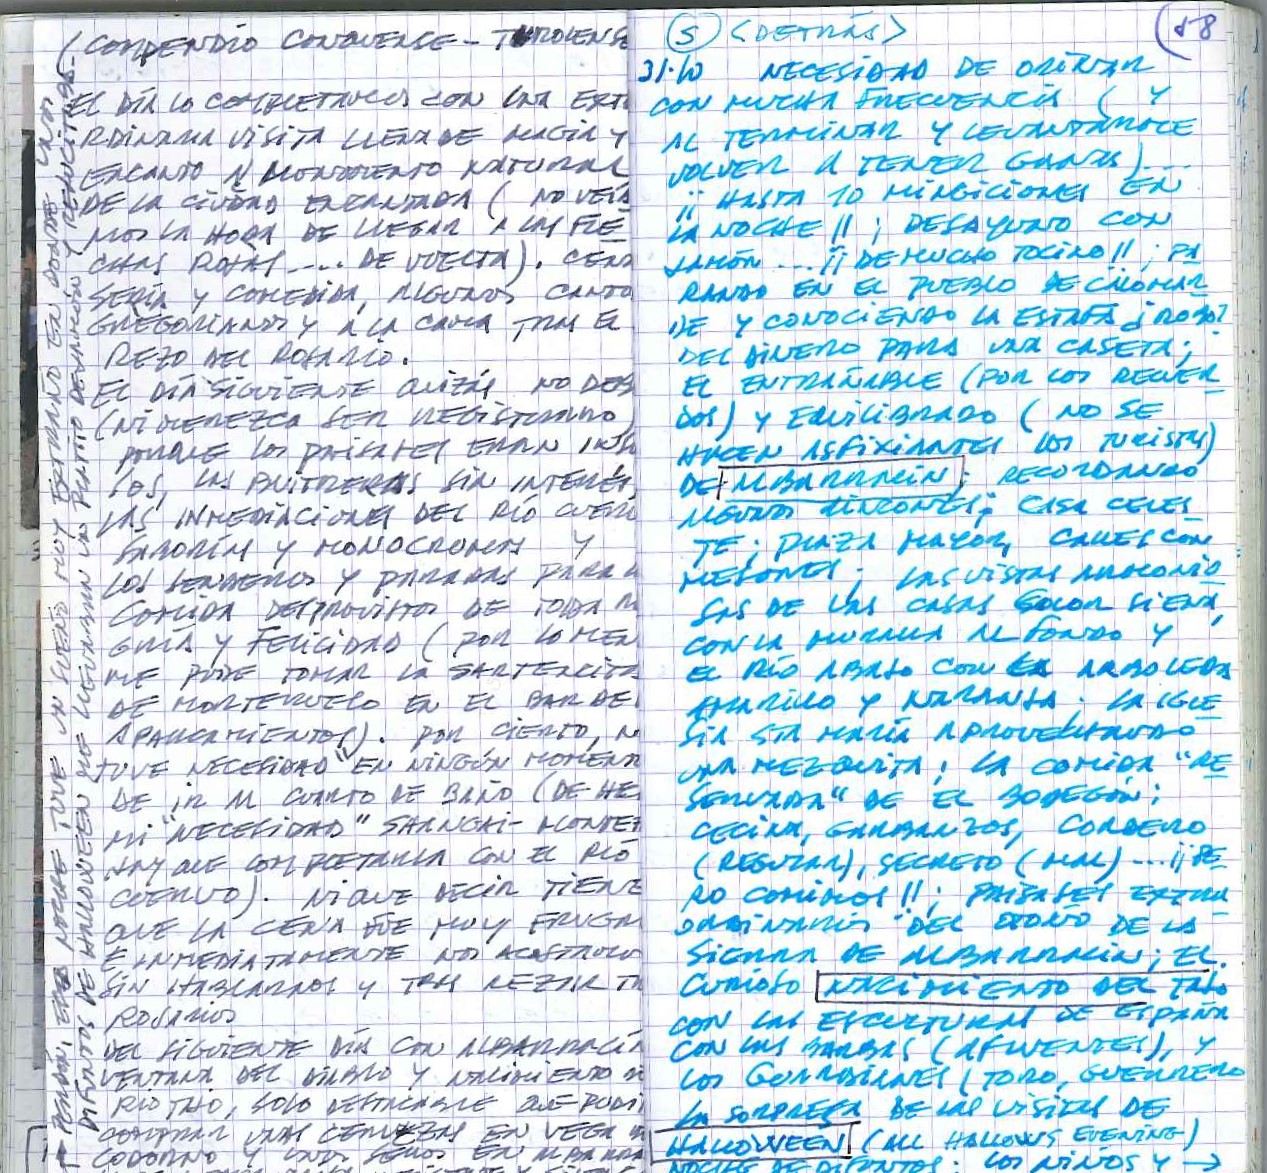 (COMPENDIO CONQUENSE - TUROLENSE
EL DÍA LO COMPLETAMOS CON UNA EXTR
RDINARIA VISITA LLENA DE MAGIA Y
ENCANTO AL MONUMENTO NATURAL
DE LA CIUDAD ENCANTADA ( NO VEÍA
MOS LA HORA DE LLEGAR A LAS FLE
CHAS ROJAS .... DE VUELTA). CENA
SERIA Y COMEDIDA, ALGUNOS CANTO
GREGORIANOS Y A LA CAMA TRAS EL
REZO DEL ROSARIO.
EL DÍA SIGUIENTE QUIZÁS NO DEB
(NI MEREZCA SER REGISTRADO)
PORQUE LOS PAISAJES ERAN INSU
LOS, LAS BUITRERAS SIN INTERÉS,
LAS INMEDIACIONES DEL RÍO CUERV
Y MONOCROMAS Y
LOS SENDEROS Y PARADAS PARA
COMIDA DESPROVISTOS DE TODA
GRÍA Y FELICIDAD (POR LO MEN
ME PUDE TOMAR LA SARTENCITA
DE MORTERUELO EN EL BAR DE
APARCAMIENTOS). POR CIERTO, N
TUVE NECESIDAD "EN NINGÚN MOMENT
DE IR AL CUARTO DE BAÑO (DE HE
MI "NECESIDAD" SHANGAI-
HAY QUE COMPLETARLA CON EL RÍO
CUERVO). NI QUE DECIR TIENE
QUE LA CENA FUE MUY FRUGA
E INMEDIATAMENTE NOS ACOSTAMOS
SIN HABLARNOS Y TRAS REZAR
ROSARIOS
DEL SIGUIENTE DÍA CON ALBARRACÍN
VENTANA DEL DIABLO Y NACIMIENTO
RIO TAJO, SOLO DESTACABLE QUE PUDI
COMPRAR UNAS CERVEZAS EN VEGA
CODORNO Y UNOS EN ALBARRA
PERDÓN, ESA NOCHE TUVE UN SUEÑO MUY EXTRAÑO EN DONDE UNOS
DIFUNTOS DE HALLOWEEN QUE LLEVABAN UN PLATITO DE JAMÓN Y
(S) <DETRÁS>
(58
31·10 NECESIDAD DE ORINAR
CON MUCHA FRECUENCIA ( Y
AL TERMINAR Y LEVANTARME
VOLVER A TENER GANAS)....
¡¡ HASTA 10 MINGICIONES EN
LA NOCHE !! ; DESAYUNO CON
JAMÓN ... ¡¡ DE MUCHO TOCINO !! ; PA
RANDO EN EL PUEBLO DE CALOMAR
DE Y CONOCIENDO LA ESTAFA ¿ROBO?
DEL DINERO PARA UNA CASETA ;
EL ENTRAÑABLE (POR LOS RECUER
DOS) Y EQUILIBRADO ( NO SE
HACEN ASFIXIANTES LOS TURISTAS)
DE ALBARRACÍN ; RECORDANDO
ALGUNOS RINCONES ; CASA CELES
TE ; PLAZA MAYOR, CALLES CON
MESONES ; LAS VISTAS ARMONIO
SAS DE LAS CASAS COLOR SIENA,
CON LA MURALLA AL FONDO Y
EL RÍO ABAJO CON LA ARBOLEDA
AMARILLO Y NARANJA. LA IGLE
SIA STA MARÍA APROVECHANDO
UNA MEZQUITA ; LA COMIDA "RE
SERVADA" DE EL BODEGÓN ;
CECINA, GARBANZOS, CORDERO
(REGULAR), SECRETO (MAL) .... ¡¡ PE
RO COMIMOS !! ; PAISAJES EXTRA
ORDINARIOS DEL OTOÑO DE LA
SIERRA DE ALBARRACÍN ; EL
CURIOSO NACIMIENTO DEL TAJO
CON LAS ESCULTURAS DE ESPAÑA
CON LAS BARBAS (AFLUENTES), Y
LOS GUARDIANES (TORO, GUERRERO
LA SORPRESA DE LAS VISITAS DE
HALLOWEEN (ALL HALLOWS EVENING)
NOCHE DE DIFUNTOS: LOS NIÑOS Y →